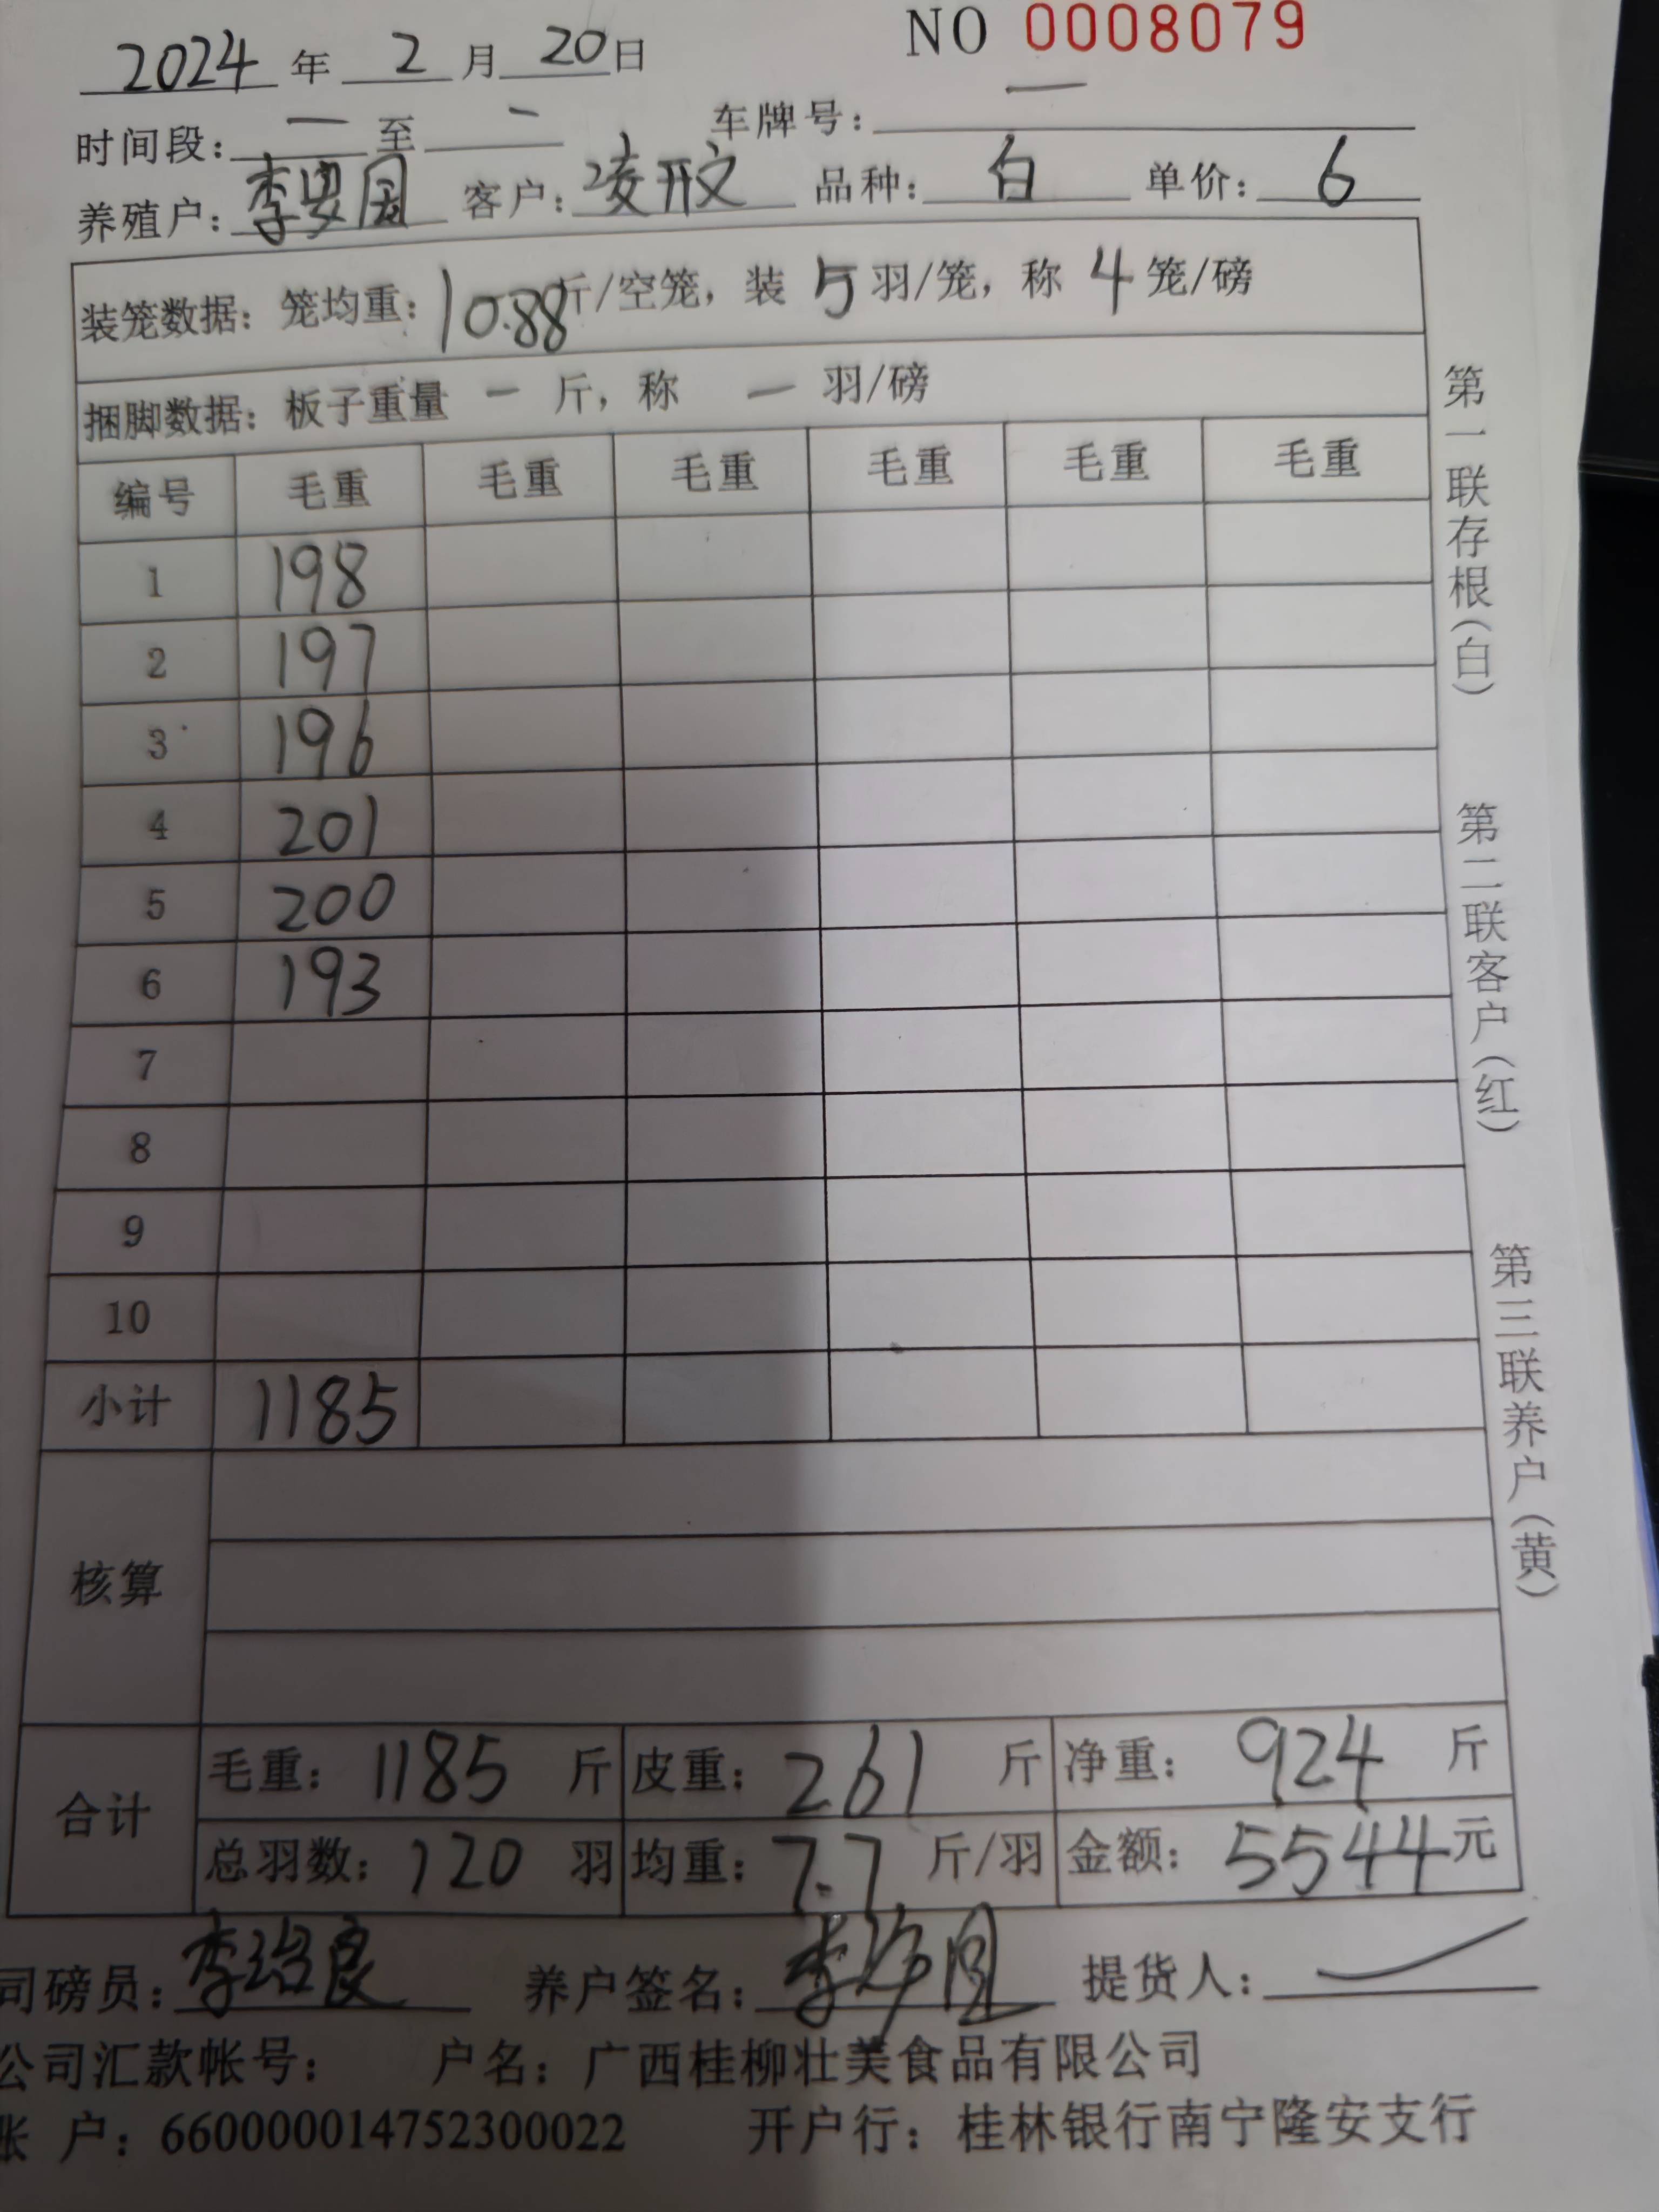 2024 年 2 月 20 日 NO 0008079
时间段: 一 至 一 车牌号: 一
养殖户: 李 客户: 凌开文 品种: 白 单价: 6
装笼数据: 笼均重: 10.88 斤/空笼, 装 5 羽/笼, 称 4 笼/磅
捆脚数据: 板子重量 一 斤, 称 一 羽/磅
编号 毛重 毛重 毛重 毛重 毛重 毛重
1 198
2 197
3 196
4 201
5 200
6 193
7
8
9
10
小计 1185
核算
合计 毛重: 1185 斤 皮重: 261 斤 净重: 924 斤
总羽数: 120 羽 均重: 7.7 斤/羽 金额: 5544 元
司磅员: 李绍良 养户签名: 李 提货人:
公司汇款帐号: 户名: 广西桂柳壮美食品有限公司
账 户: 660000014752300022 开户行: 桂林银行南宁隆安支行
第一联存根(白) 第二联客户(红) 第三联养户(黄)